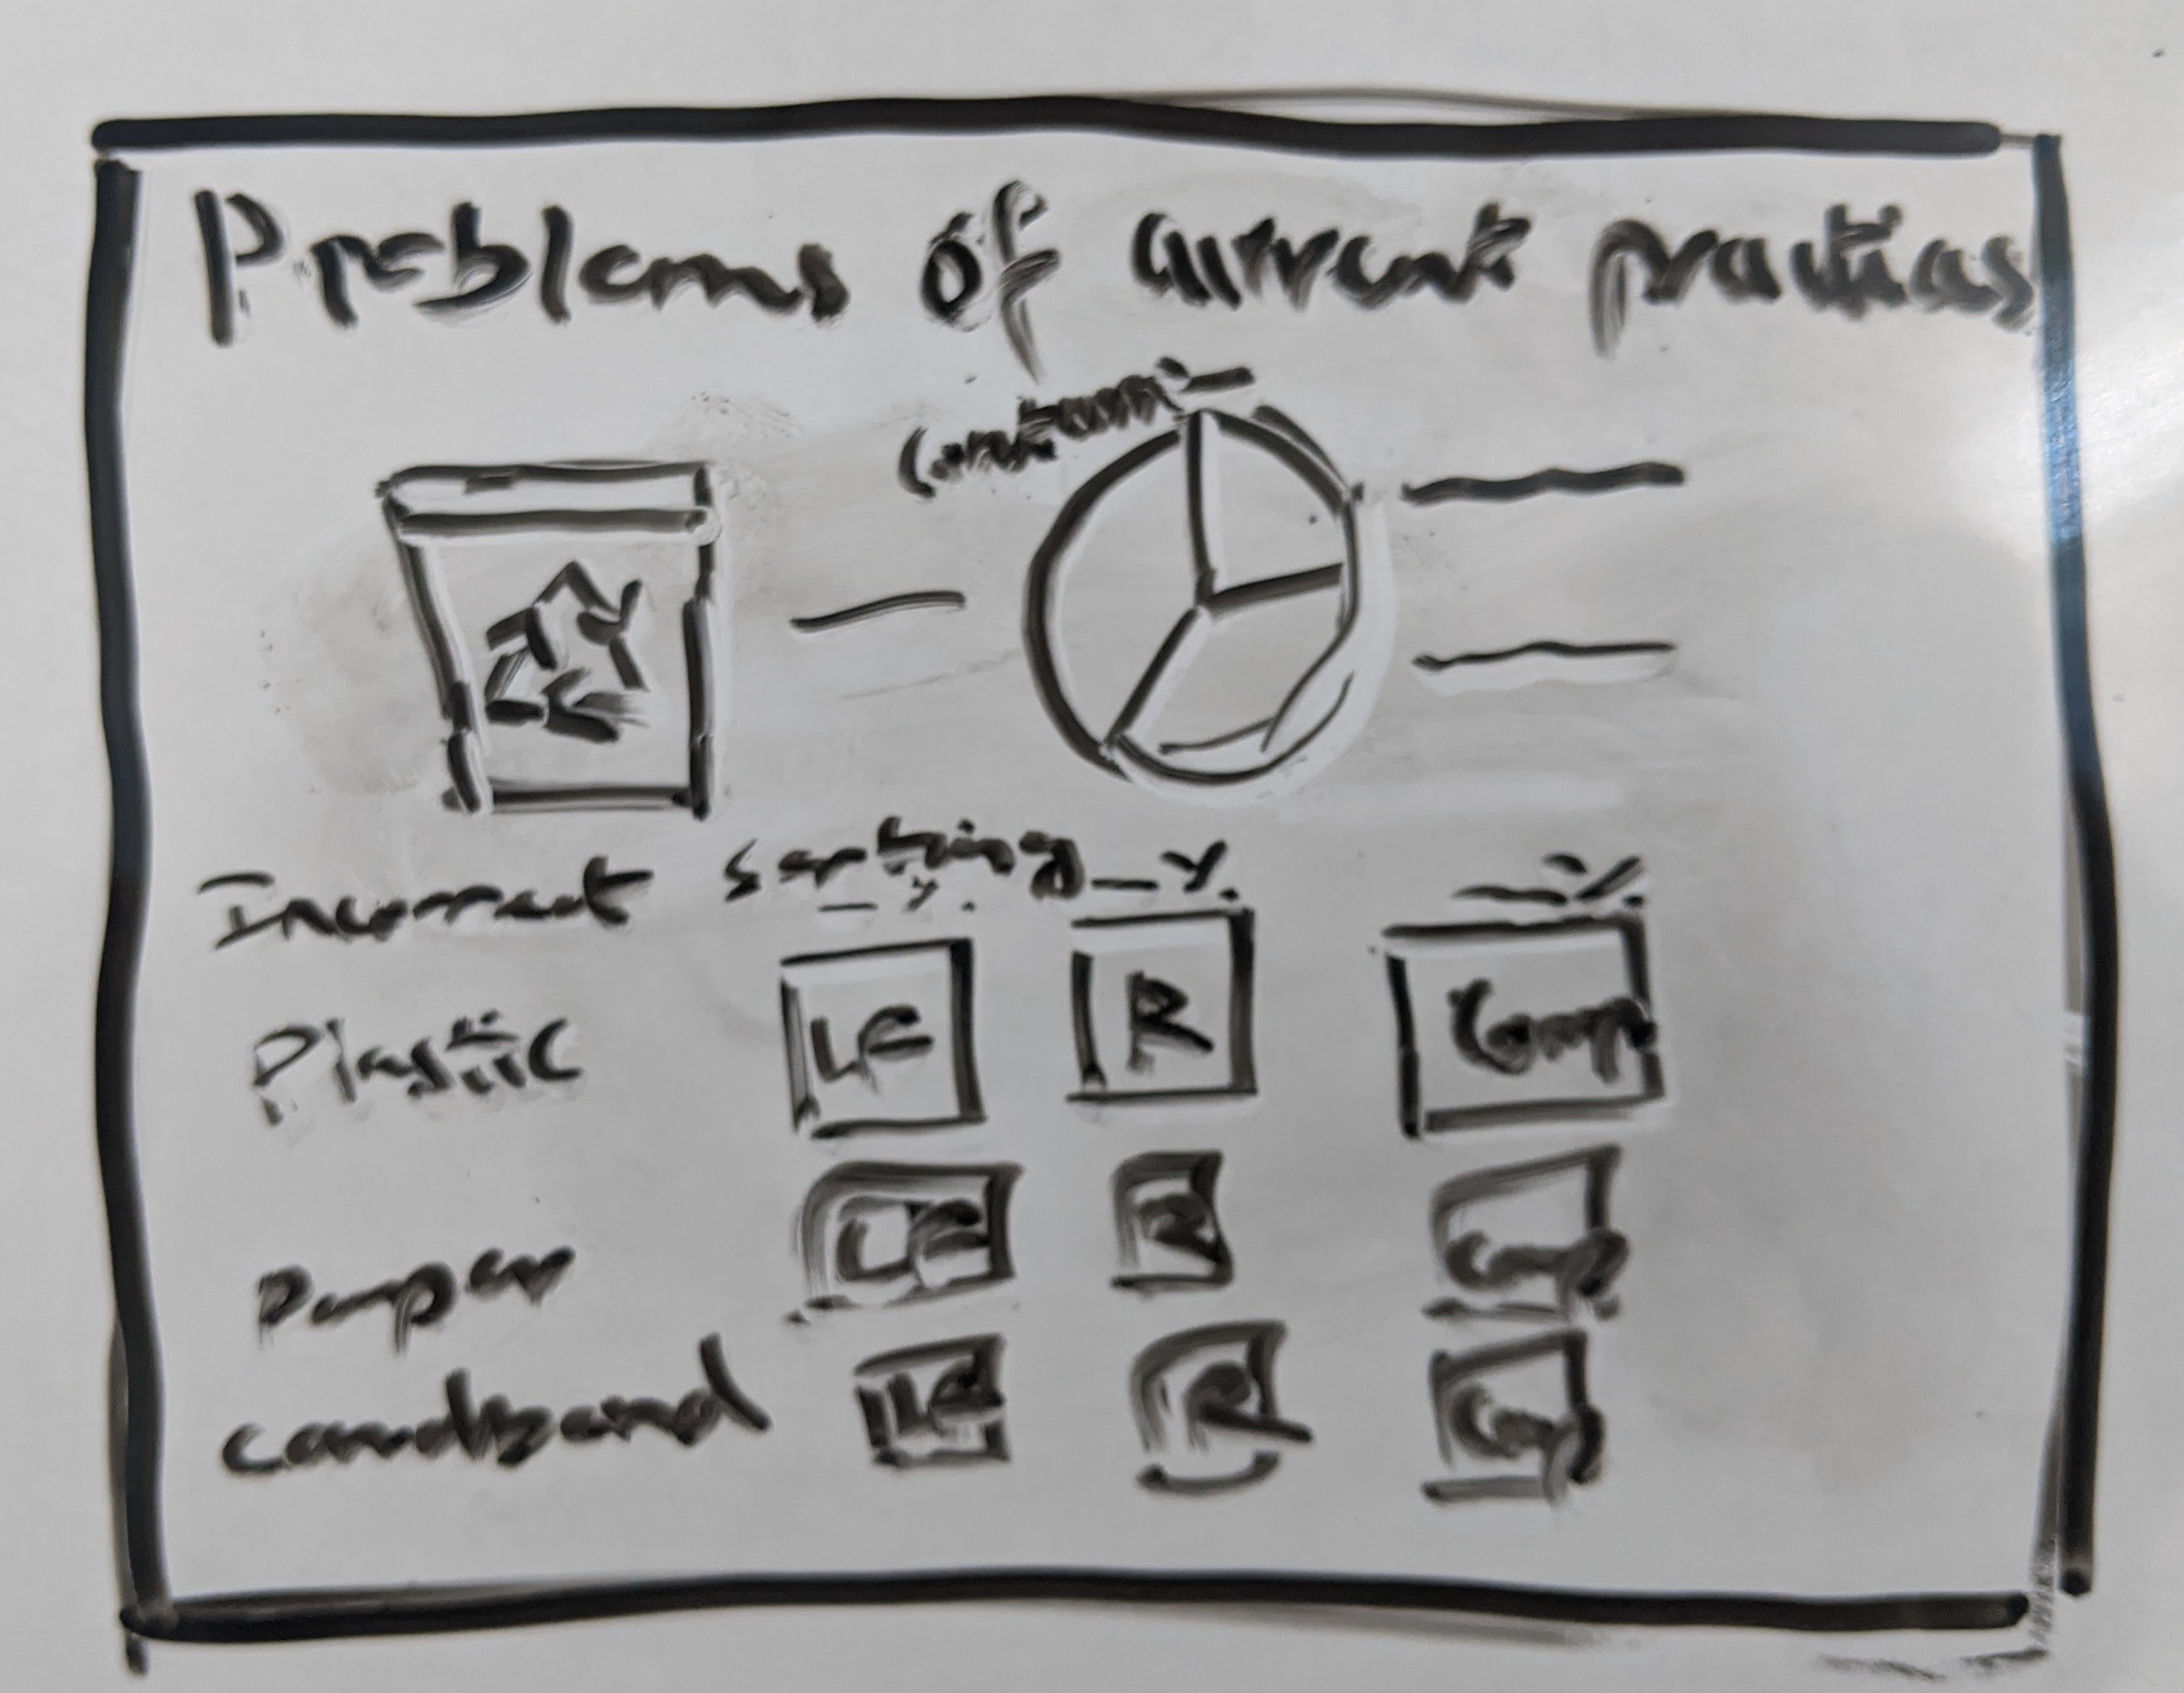 Problems of current practices
Contam
Incorrect sorting _ %.
_ %.
_ %.
Plastic LF R Comp
Paper LF R Comp
cardboard LF R Comp